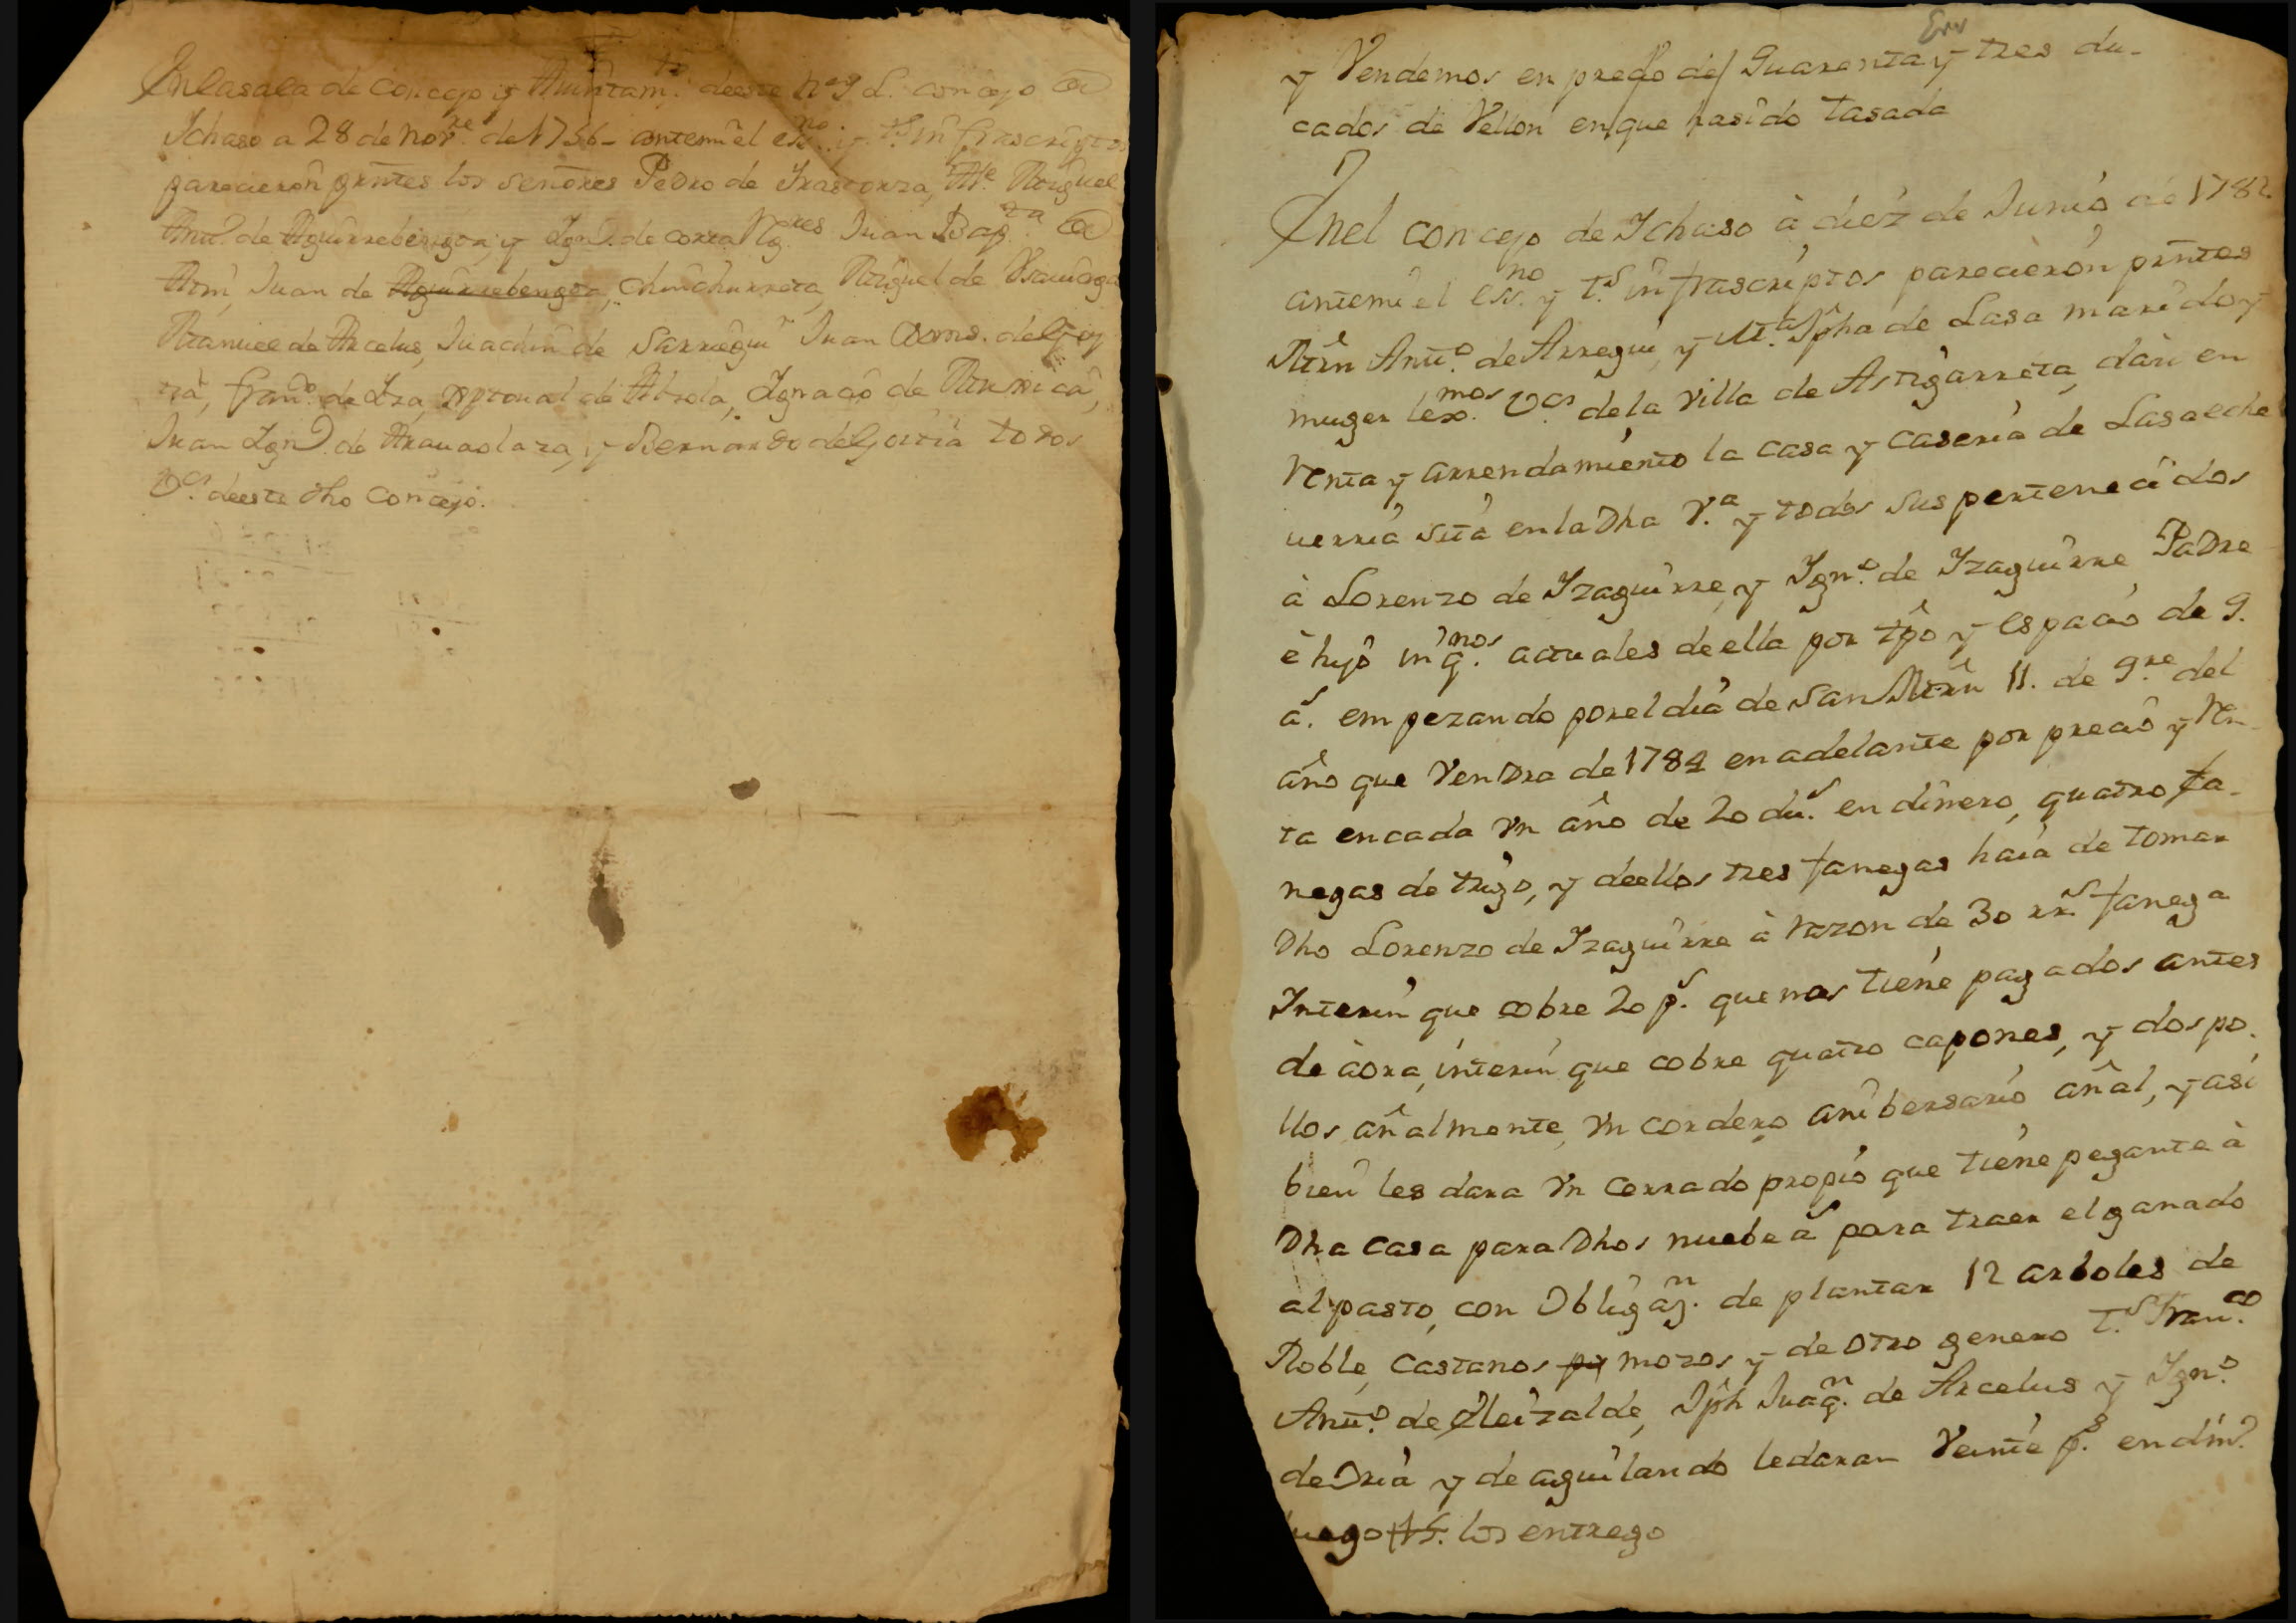 En la sala de concejo y Ayuntam.to de este N. y L. concejo de
Ichaso a 28 de nov.re de 1756- ante mi el esno. y ts. infrascriptos
parecieron prntes los señores Pedro de Irastorza, Alc.e Miguel
Antt.o de Aguirrebengoa, y Ign.o de corta Rg.res Juan Bap.ta de
Juan de Aguirrebengoa, chinchurreta, Miguel de Usauiaga
Manuel de Arcelus, Juachin de Sarriegui Juan de Goy
tia, Fran.co de Iza, de Alzola, Ignacio de
Juan Ign.o de Arauaolaza, y Bernardo de Goitia todos
vs. de este dho concejo.
Err
y Vendemos en precio de quarenta y tres du-
cados de Vellon en que ha sido tasada
En el concejo de Ichaso à diez de Junio de 1782.
ante mi el esc.no y t.s infrascriptos parecieron prntes
Mrn Antt.o de Arregui, y M.a Jpha de Lasa marido y
muger lex.mos vs. de la villa de Astigarreta, dan en
renta y arrendamiento la casa y caseria de Lasaeche
uerria sita en la Dha V.a y todos sus pertenecidos
à Lorenzo de Izaguirre, y Ign.o de Izaguirre Padre
è hijo inq.nos actuales de ella por tpo y espacio de 9.
a.s empezando por el dia de San Mrn 11. de 9.re del
año que Vendra de 1782 en adelante por precio y ren-
ta en cada vn año de 20 du.s en dinero, quatro fa-
negas de trigo, y de ellos tres fanegas haia de tomar
Dho Lorenzo de Izaguirre à razon de 30 rr.s fanega
Interin que cobre 20 p.s que nos tiene pagados antes
de aora, interin que cobre quatro capones, y dos po-
llos añalmente, vn cordero anibersario añal, y asi
bien les dara vn cerrado propio que tiene pegante à
Dha casa para Dhos nuebe a.s para traer el ganado
al pasto, con Obligaz.n de plantar 12 arboles de
Roble, castanos mozos y de otro genero t.s Fran.co
Antt.o de Eleizalde, Jph Juaq.n de Arcelus y Ign.o
de Oria y de aguilando le daran Veinte p.s en din.o
luego los entrego